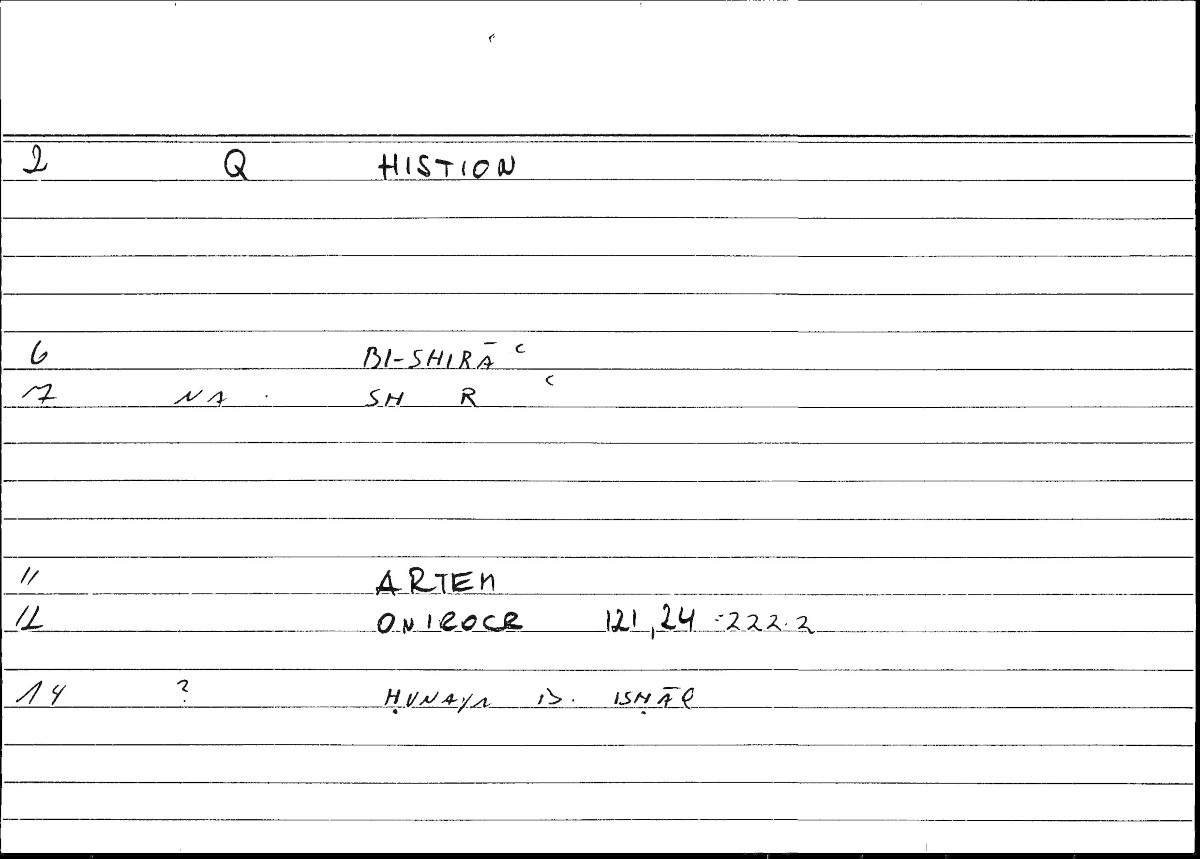 2 Q HISTION
6 BI-SHIRĀʿ
7 NA. SH R ʿ
11 ARTEM
12 ONIROCR 121,24 - 222.2
14 ? ḤUNAYN B. ISḤĀQ